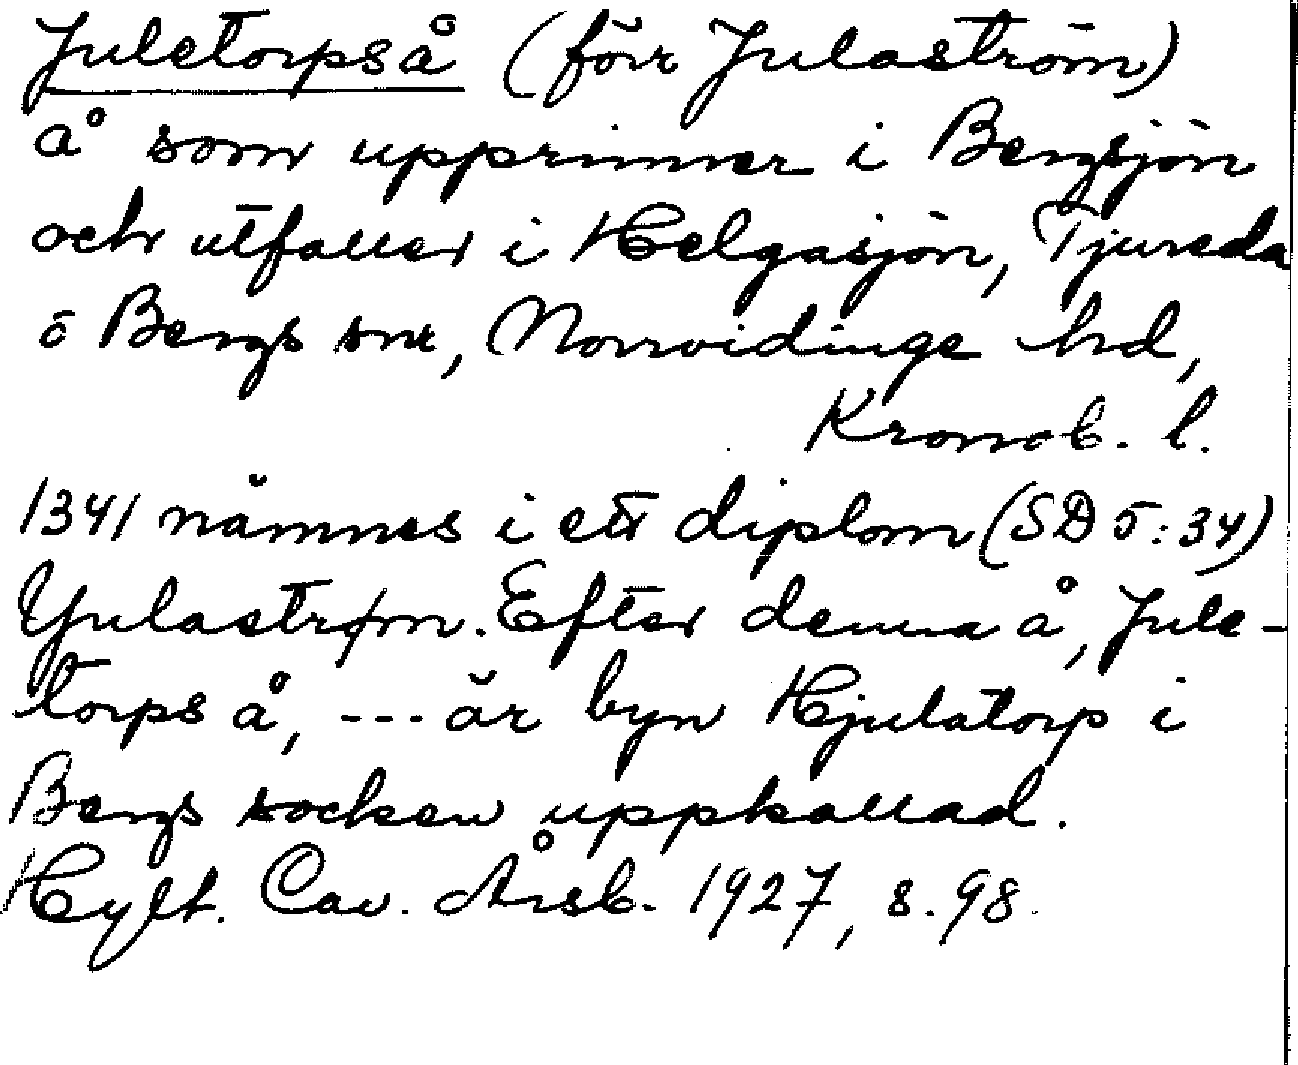 Juletorpså (förr Julaström)
å som upprinner i Bergsjön
och utfaller i Helgasjön, Tjureda
o Bergs snr, Norrvidinge hrd,
Kronob. l.
1341 nämnes i ett diplom (SD 5:34)
Yulastrøm. Efter denna å, Jule-
torps å, --- är byn Hjulatorp i
Bergs socken uppkallad.
Hylt. Cav. Årsb. 1927, s. 98.